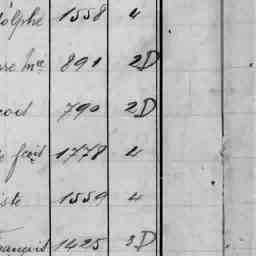 dolphe 1558 4
rre Mce 891 2D
cois 790 2D
e fçois 1778 4
iste 1559 4
rançois 1425 3D